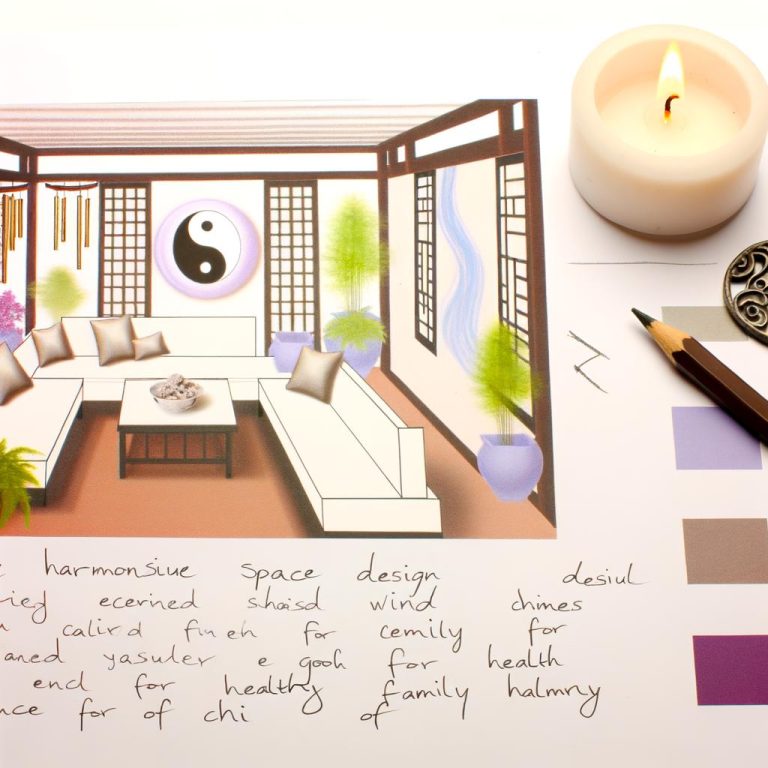 harmonsiue space design desiul
ecerined wind chimes
for cemily for
yasuler e gooh for health
end for healthy family halmny
for of chi of